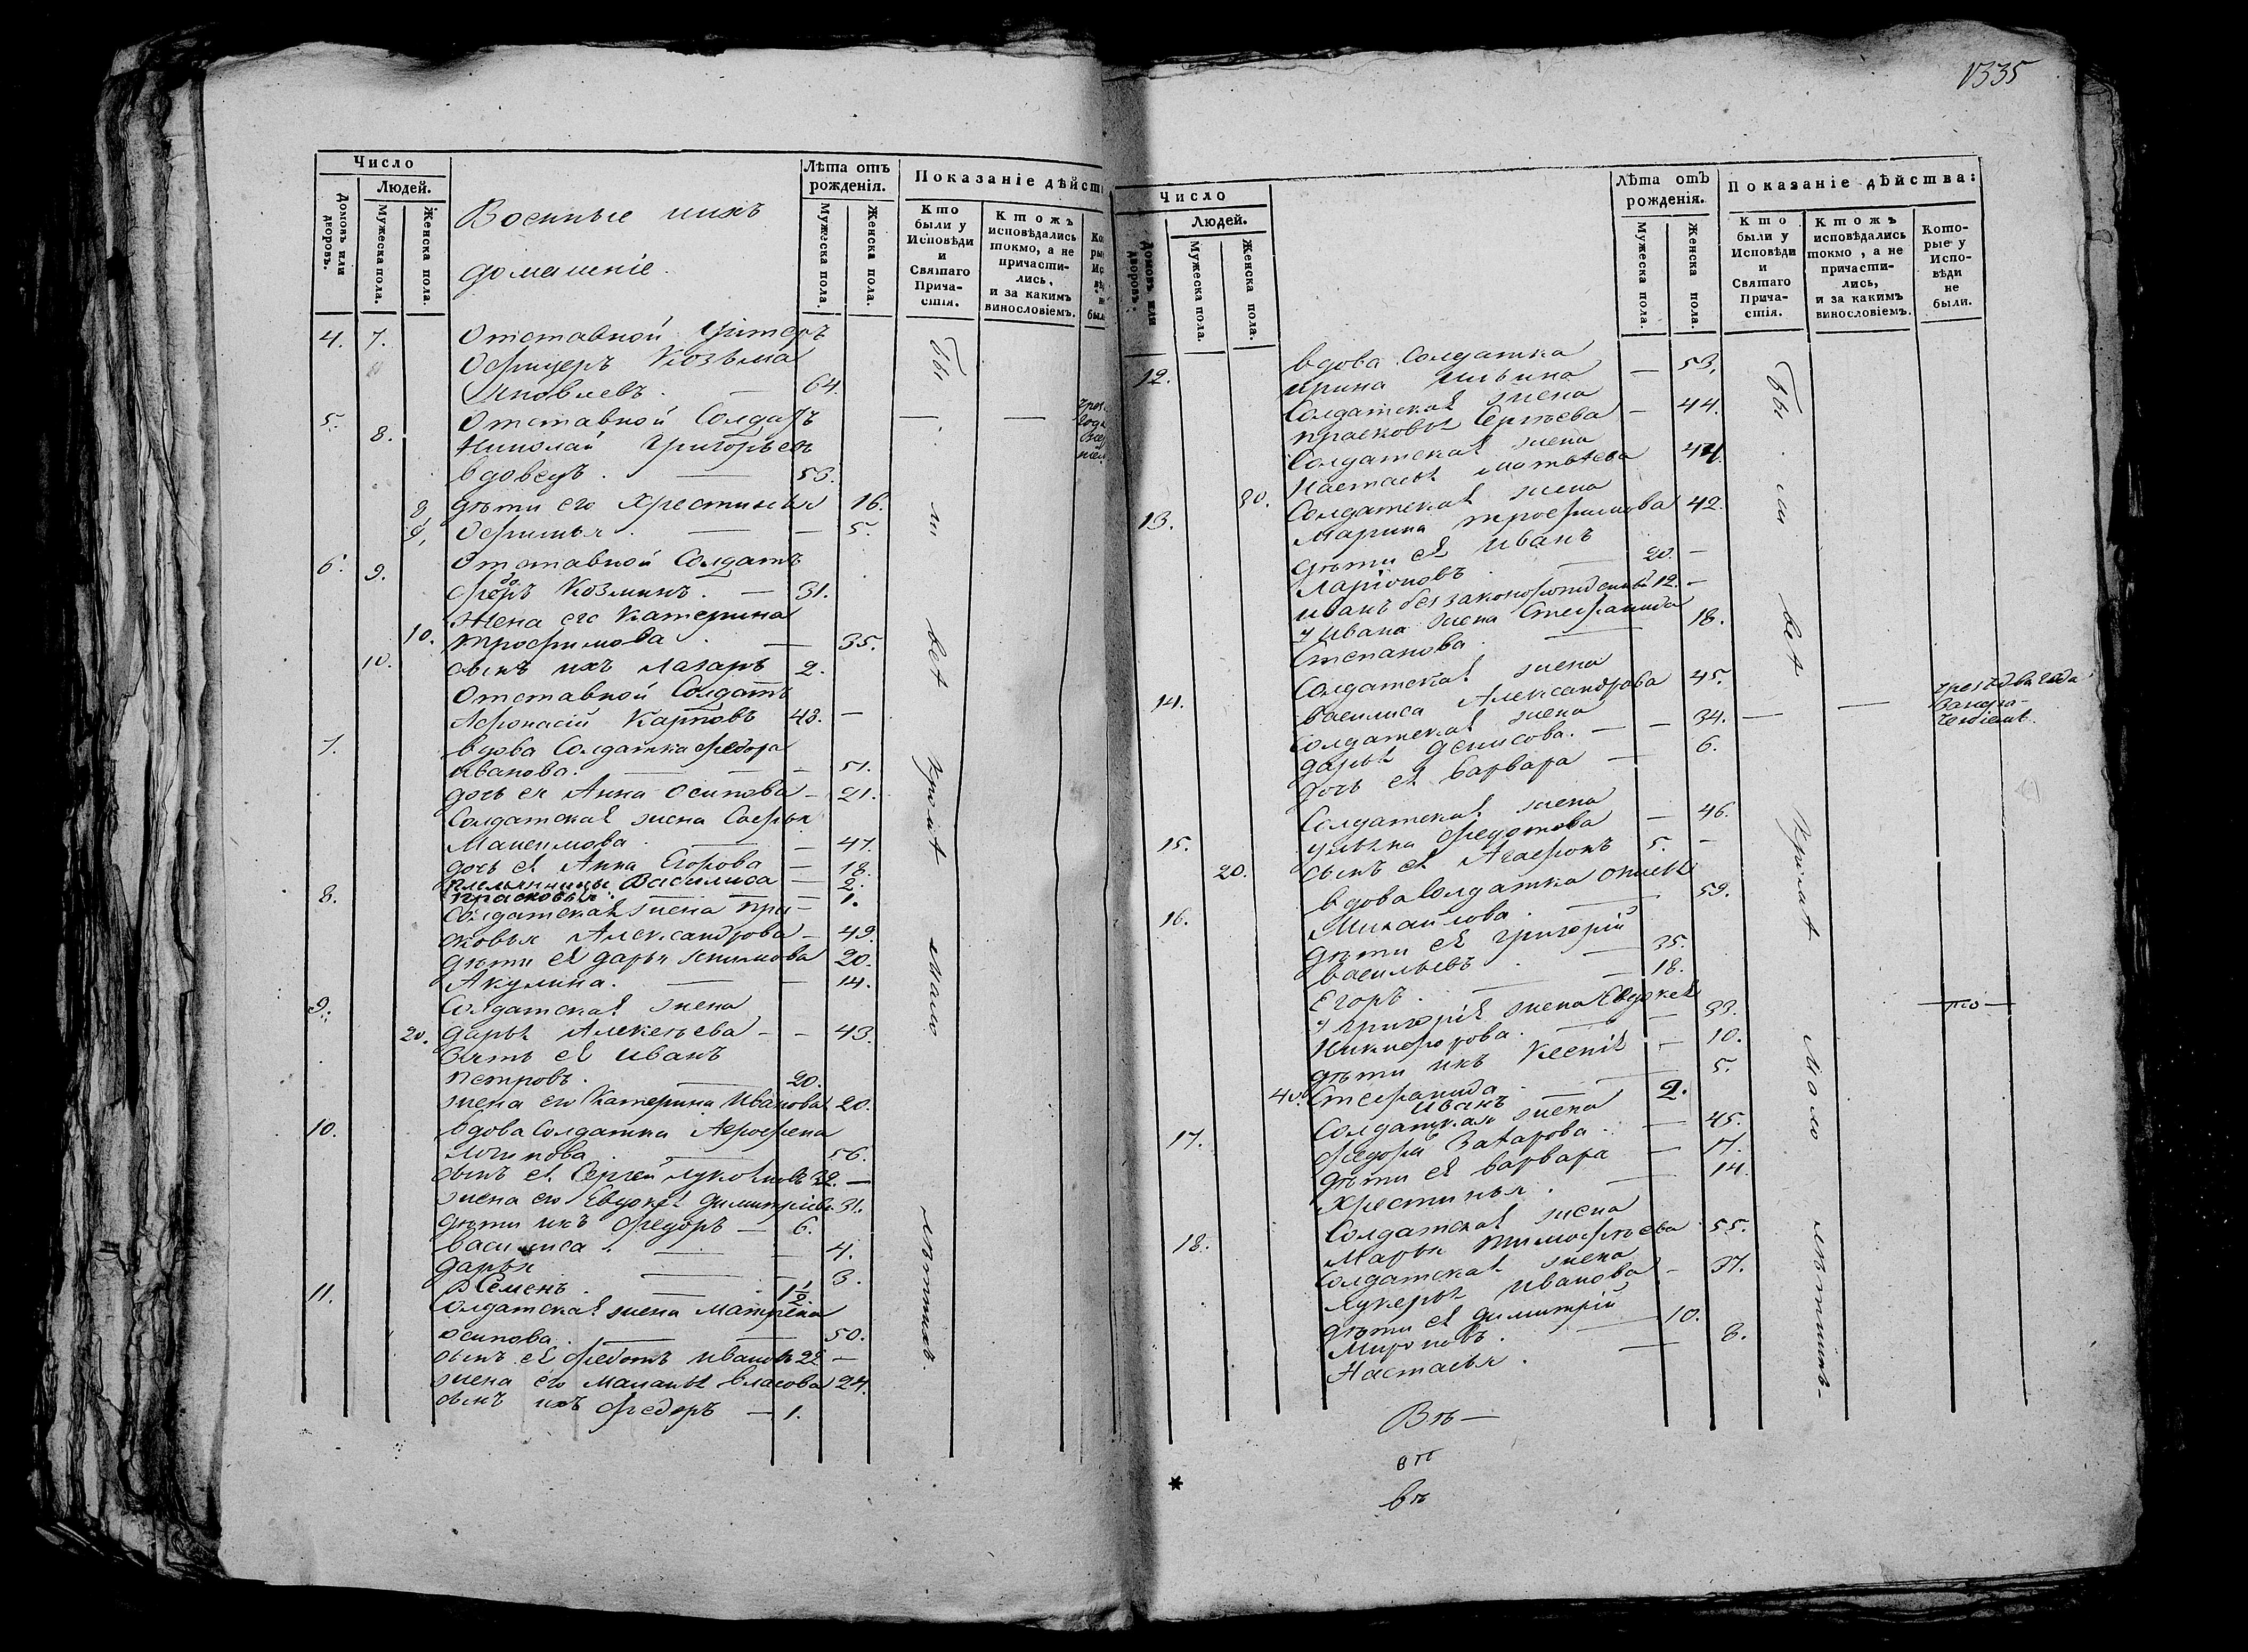 Число
Людей.
Домовъ или дворовъ.
Мужеска пола.
Женска пола.
Военные ихъ
домашніе.
Лѣта отъ рожденія.
Мужеска пола.
Женска пола.
Показаніе дѣйст
Кто были у Исповѣди и Святаго Причастія.
Ктожъ исповѣдались токмо, а не причастились, и за какимъ винословіемъ.
4. 7. Отставной Унтеръ
Офицеръ Козьма
Яковлевъ. — 64.
5. 8. Отставной Солдатъ
Николай Григорьевъ
вдовецъ. — 53.
8 дѣти его Хрестинья 16.
9. Офимья. — 5.
6. 9. Отставной Солдатъ
Федоръ Козминъ. — 31.
Жена его Катерина
10. Трофимова. — 35.
10. сынъ ихъ Лазарь 2.
Отставной Солдатъ
Афонасій Карповъ 43. —
7. вдова Солдатка Федора
Иванова. — 51.
дочь ея Анна Осипова — 21.
Солдатская жена Софья
Максимова — 47.
дочь ея Анна Егорова — 18.
племянницы Василиса — 2.
Прасковья. — 1.
8. Солдатская жена Пра-
сковья Александрова — 49.
дѣти ея дарья 20.
Акулина. — 14.
9. Солдатская жена
20. дарья Алексѣева — 43.
Зять ея Иванъ
Петровъ. — 20.
жена его Катерина Иванова 20.
10. вдова Солдатка Агрофена
Логинова — 56.
сынъ ея Сергей 32. —
жена его Евдокея димитріева 31.
дѣти ихъ Федоръ — 6.
Василиса. — 4.
дарья — 3.
Семенъ. — 1 1/2.
11. Солдатская жена Матрена
осипова. — 50.
сынъ ея Федотъ Ивановъ 22 —
жена его Маланья власова 24.
сынъ ихъ Федоръ — 1.
Бы
ли
вет
Кромѣ
Мало
лѣтнихъ.
335
Число
Людей.
Домовъ или дворовъ.
Мужеска пола.
Женска пола.
Лѣта отъ рожденія.
Мужеска пола.
Женска пола.
Показаніе дѣйства:
Кто были у Исповѣди и Святаго Причастія.
Ктожъ исповѣдались токмо, а не причастились, и за какимъ винословіемъ.
Которые у Исповѣди не были.
12. вдова Солдатка
Ирина Ильина — 53.
Солдатская жена
Прасковья Сергѣева — 44.
Солдатская жена
Настасья Матвѣева 44.
13. 30. Солдатская жена
Марина Трофимова 42.
дѣти ея Иванъ
Ларіоновъ — 20. —
Иванъ беззаконорожденный 12. —
у Ивана жена Стефанида
Степанова — 18.
14. Солдатская жена
Василиса Александрова 45.
Солдатская жена
дарья денисова. — 34. —
дочь ея Варвара — 6.
15. Солдатская жена
Ульяна Федотова — 46.
20. сынъ ея Агафонъ 5. —
16. вдова Солдатка
Михайлова. — 59.
дѣти ея Григорій
Васильевъ — 35.
Егоръ. — 18.
у Григорія жена Евдокея
Никифорова. — 33.
дѣти ихъ Ксенія — 10.
40. Стефанида — 5.
Иванъ 2.
17. Солдатская жена
Федора Захарова. — 45.
дѣти ея Варвара — 17.
Хрестинья. — 14.
18. Солдатская жена
Марья Тимофѣева 55.
Солдатская жена
Лукерья Иванова — 37.
дѣти ея Димитрій
Мироновъ. — 10.
Настасья. — 8.
Бы
ли
вет
Кромѣ
Мало
лѣтнихъ
то
*